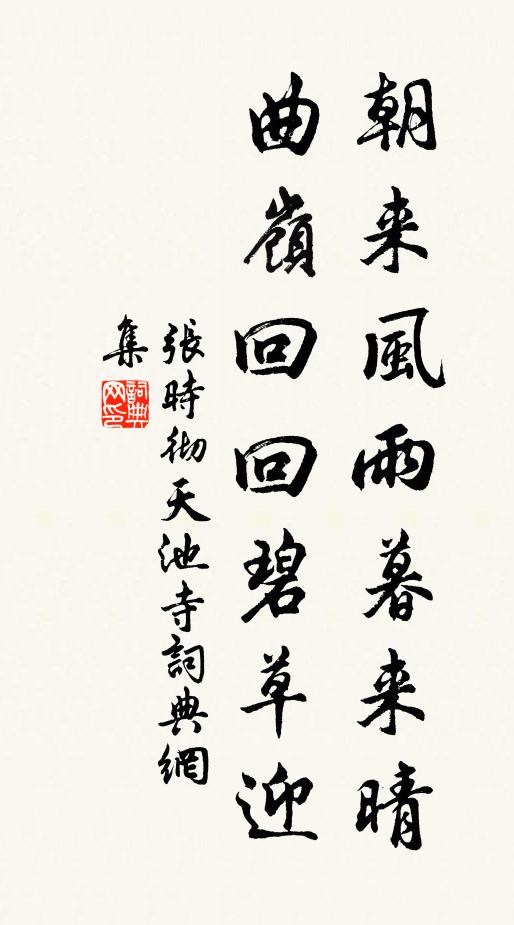 朝来風雨暮来晴
曲嶺回回碧草迎
張時彻天池寺詞典網
集
詞典
网印